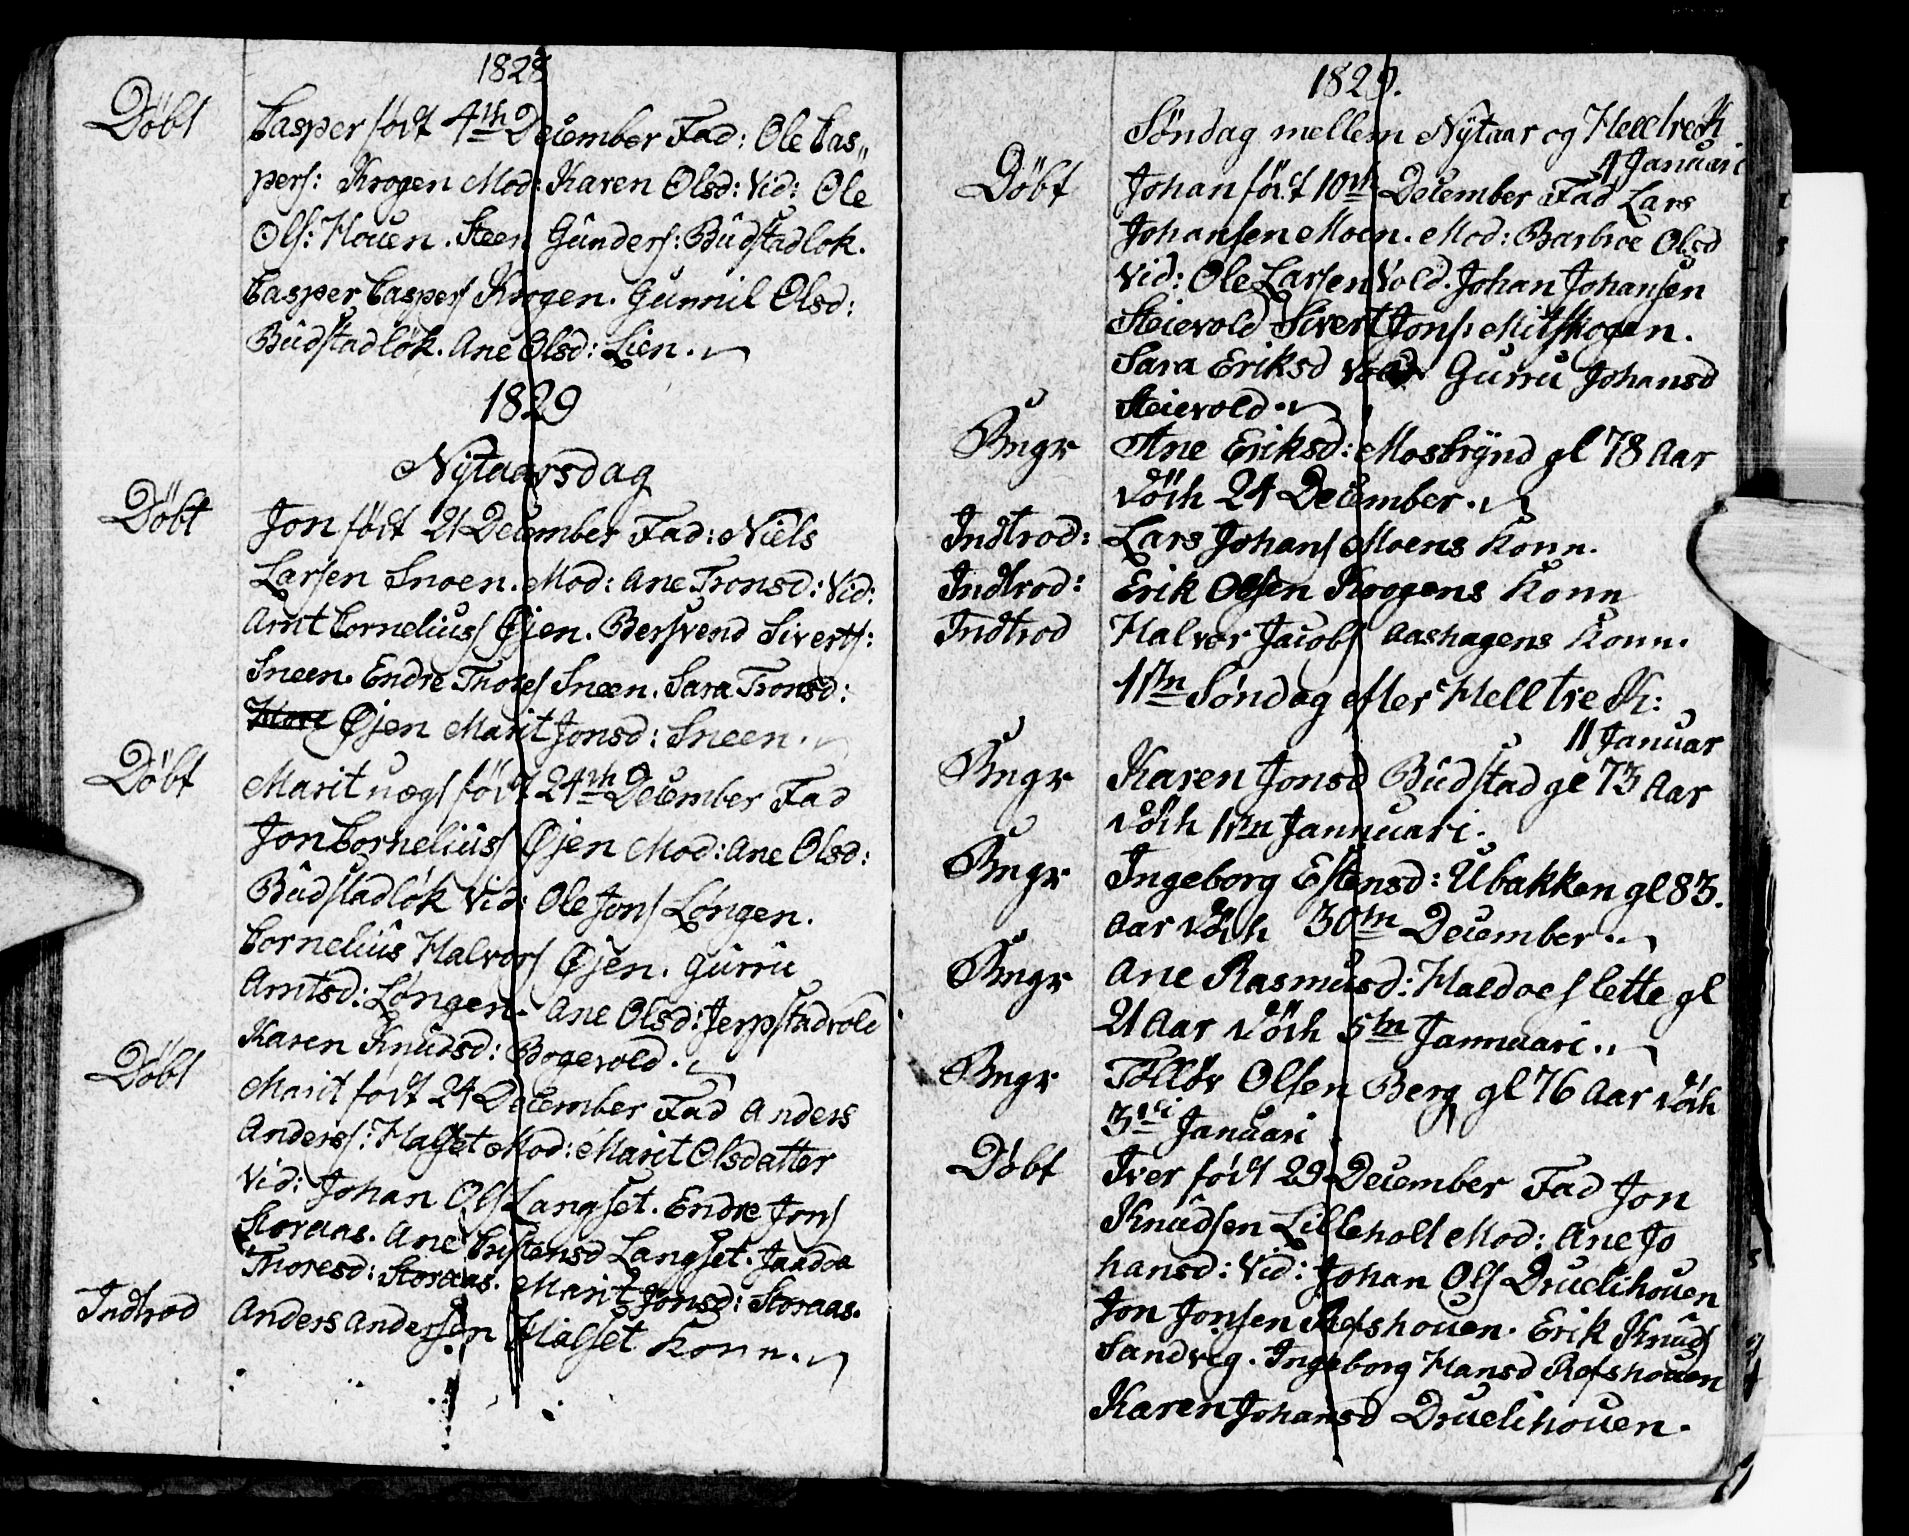 1828
Döbt Casper födt 4th December Fad: Ole Cas„
pers: Krogen Mod: Karen Olsd: Vid: Ole
Ols: Houen. Steen Gûnders: Bûdstadlok.
Casper Caspers Krogen. Gunnil Olsd:
Bûdstadlök. Ane Olsd: Lien.
1829
Nÿtaarsdag
Döbt Jon födt 21 December Fad: Niels
Larsen Snoen. Mod: Ane Tronsd: Vid:
Arnt Corneliuss Øjen. Bersvend Siverts:
Sneen. Endre Thores Sneen. Sara Tronsd:
Øjen Marit Jonsd: Sneen.
Döbt Marit uægs födt 24th December Fad
Jon Corneliûss Øjen Mod: Ane Olsd:
Bûdstadlök Vid: Ole Jons Løngen.
Cornelius Halvors Øjen. Gûrrû
Arntsd: Løngen. Ane Olsd: Jerpstadvold
Karen Knûdsd: Bogevold.
Döbt Marit födt 24 December Fad Anders
Anderss: Halset Mod: Marit Olsdatter
Vid: Johan Ols Langset. Endre Jons
Storaas. Ane Cristensd Langset. Jaadda
Thoresd: Storaas. Marit Jonsd: Storaas.
Indtrod Anders Andersen Halset Konn.
1829.
Söndag mellem Nÿtaar og Hell tre K
4 Januari
Döbt Johan födt 10th December Fad Lars
Johansen Moen. Mod: Barbroe Olsd
Vid: Ole Larsen Vold. Johan Johansen
Steievold Sivert Jons: Mitskogen.
Sara Eriksd Vold Gurru Johansd
Steievold.
Bngr Ane Eriksd: Mosbrÿnd gl 78 Aar
död 24 December.
Indtrod: Lars Johans Moens Konn.
Indtrod: Erik Olsen Krogens Konn
Indtrod Halvor Jacobs Aashagens Konn.
1ste Söndag efter Hell tre K:
11 Januar
Bngr Karen Jonsd Bûdstad gl 73 Aar
död 1ste Jannuari.
Bngr Ingeborg Estensd: Ubakken gl 83.
Aar död 30te December.
Bngr Ane Rasmusd: Haldoeslette gl
21 Aar död 5te Jannuari.
Bngr Tollör Olsen Berg gl 76 Aar död
3di Januari
Döbt Iver födt 29 December Fad Jon
Knûdsen Lilleholt Mod: Ane Jo
hansd: Vid: Johan Ols Druelihouen
Jon Jonsen Refshouen. Erik Knûds
Sandvig. Ingeborg Hansd Refshouen
Karen Johansd Druelihouen.